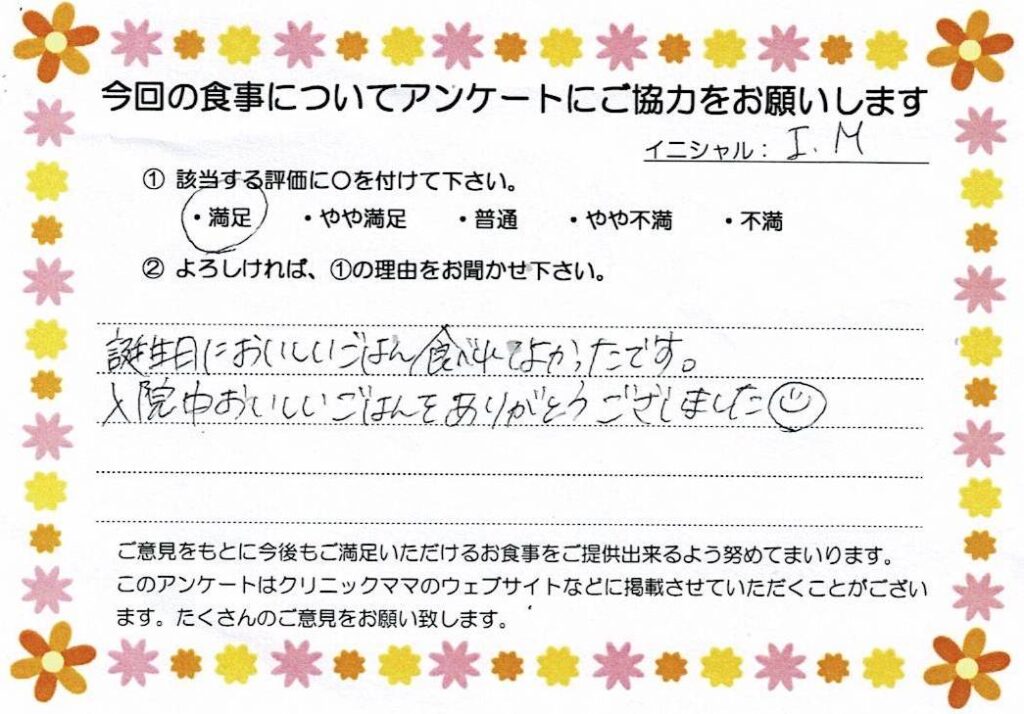 今回の食事についてアンケートにご協力をお願いします
イニシャル： I. M
① 該当する評価に〇を付けて下さい。
・満足 ・やや満足 ・普通 ・やや不満 ・不満
② よろしければ、①の理由をお聞かせ下さい。
誕生日においしいごはん食べれてよかったです。
入院中おいしいごはんをありがとうございました
ご意見をもとに今後もご満足いただけるお食事をご提供出来るよう努めてまいります。
このアンケートはクリニックママのウェブサイトなどに掲載させていただくことがござい
ます。たくさんのご意見をお願い致します。